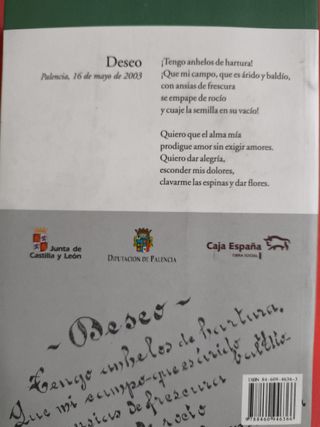 Deseo
Palencia, 16 de mayo de 2003
¡Tengo anhelos de hartura!
¡Que mi campo, que es árido y baldío,
con ansias de frescura
se empape de rocío
y cuaje la semilla en su vacío!
Quiero que el alma mía
prodigue amor sin exigir amores.
Quiero dar alegría,
esconder mis dolores,
clavarme las espinas y dar flores.
Junta de
Castilla y León
DIPUTACION DE PALENCIA
Caja España
OBRA SOCIAL
- Deseo -
Tengo anhelos de hartura.
Que mi campo que es árido
baldío
ansias de frescura
de rocío
ISBN 84-609-4636-3
9 788460 946366